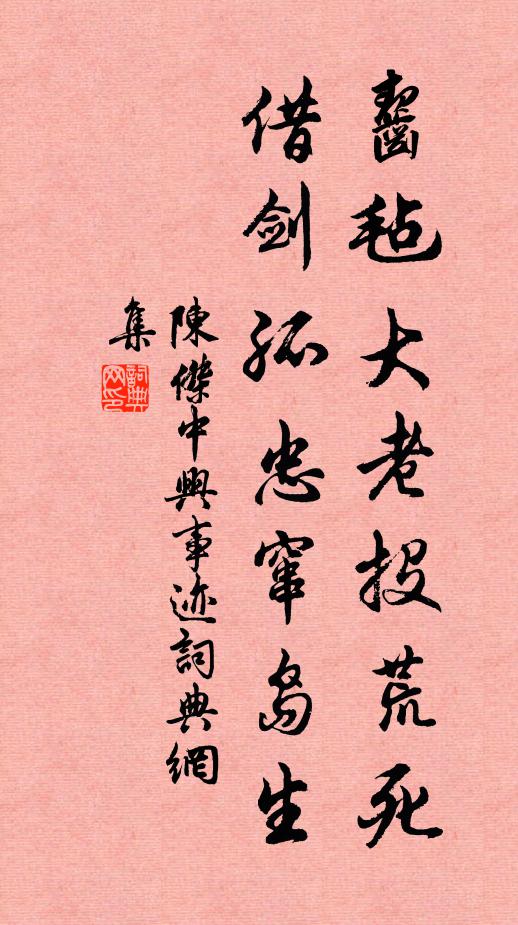 齧毡大老投荒死
借剑孤忠窜岛生
陳傑中興事迹詞典網
集
詞典
网印